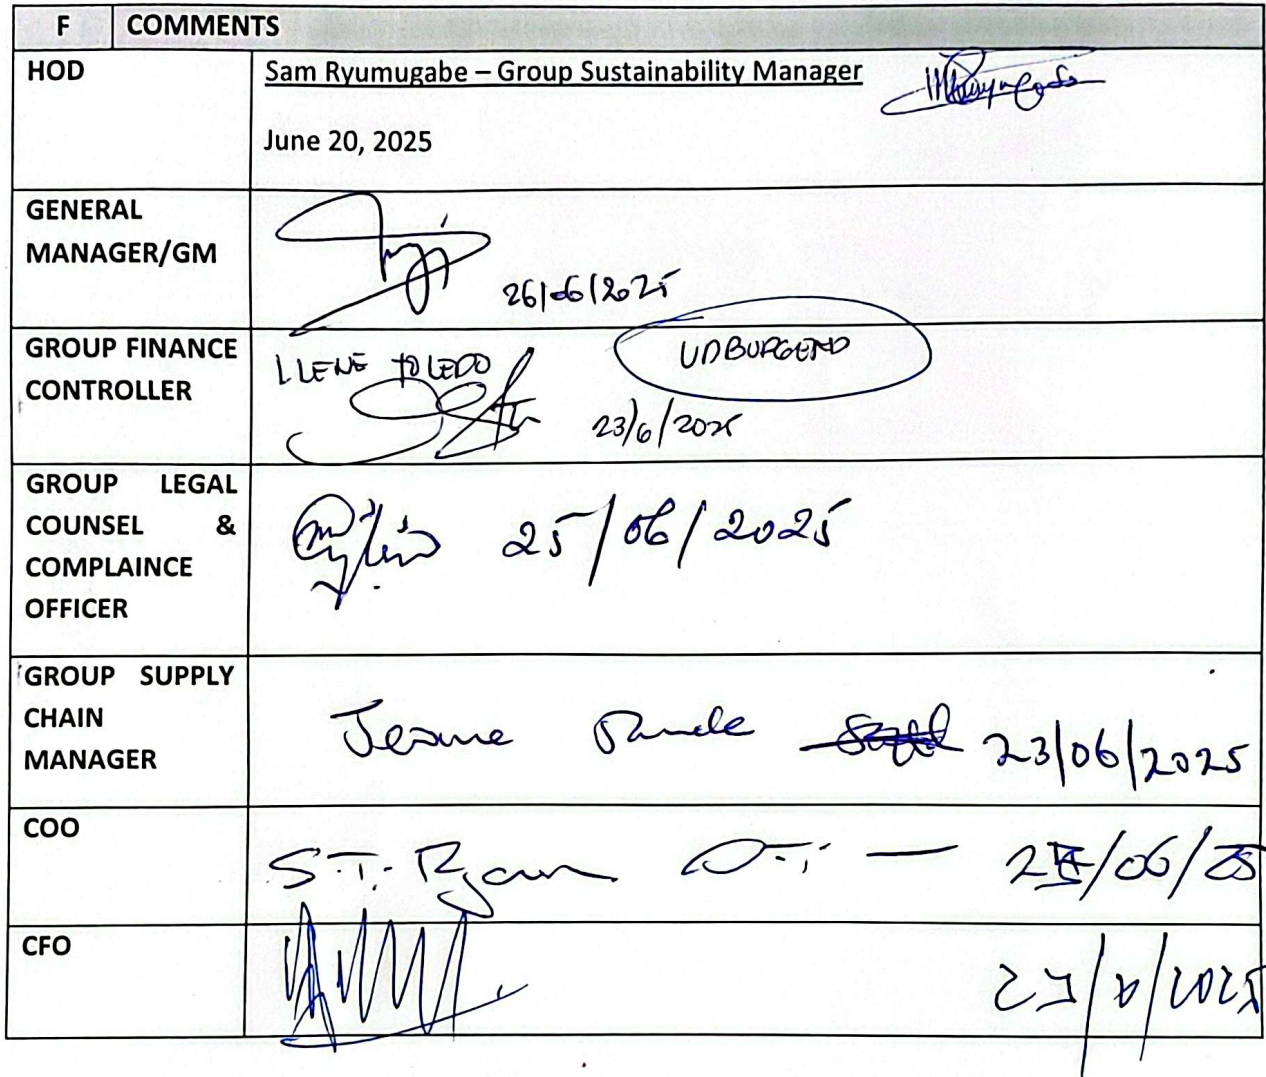 F COMMENTS
HOD
Sam Ryumugabe – Group Sustainability Manager
June 20, 2025
GENERAL
MANAGER/GM
26/06/2025
GROUP FINANCE
CONTROLLER
LLENE TOLEDO
23/6/2025
GROUP LEGAL
COUNSEL &
COMPLAINCE
OFFICER
25/06/2025
GROUP SUPPLY
CHAIN
MANAGER
23/06/2025
COO
S.T.
/06/25
CFO
/6/2025